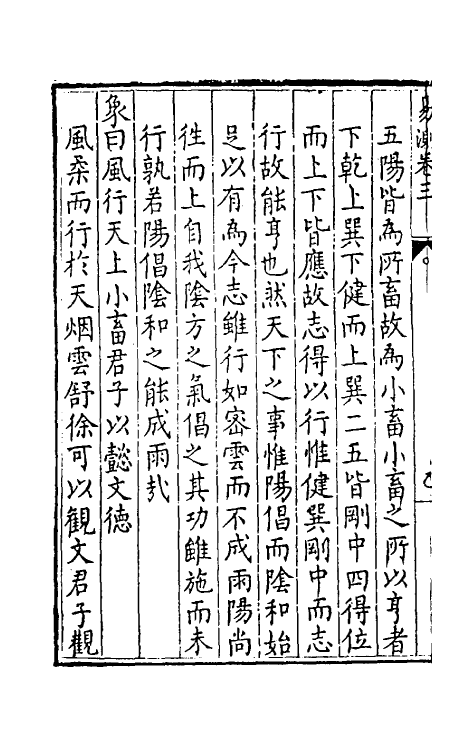 易測卷三
五陽皆為所畜故為小畜小畜之所以亨者
下乾上巽下健而上巽二五皆剛中四得位
而上下皆應故志得以行惟健巽剛中而志
行故能亨也然天下之事惟陽倡而陰和始
足以有為今志雖行如密雲而不成雨陽尚
徃而上自我陰方之氣倡之其功雖施而未
行孰若陽倡陰和之能成雨㢤
象曰風行天上小畜君子以懿文德
風柔而行於天烟雲舒徐可以觀文君子觀